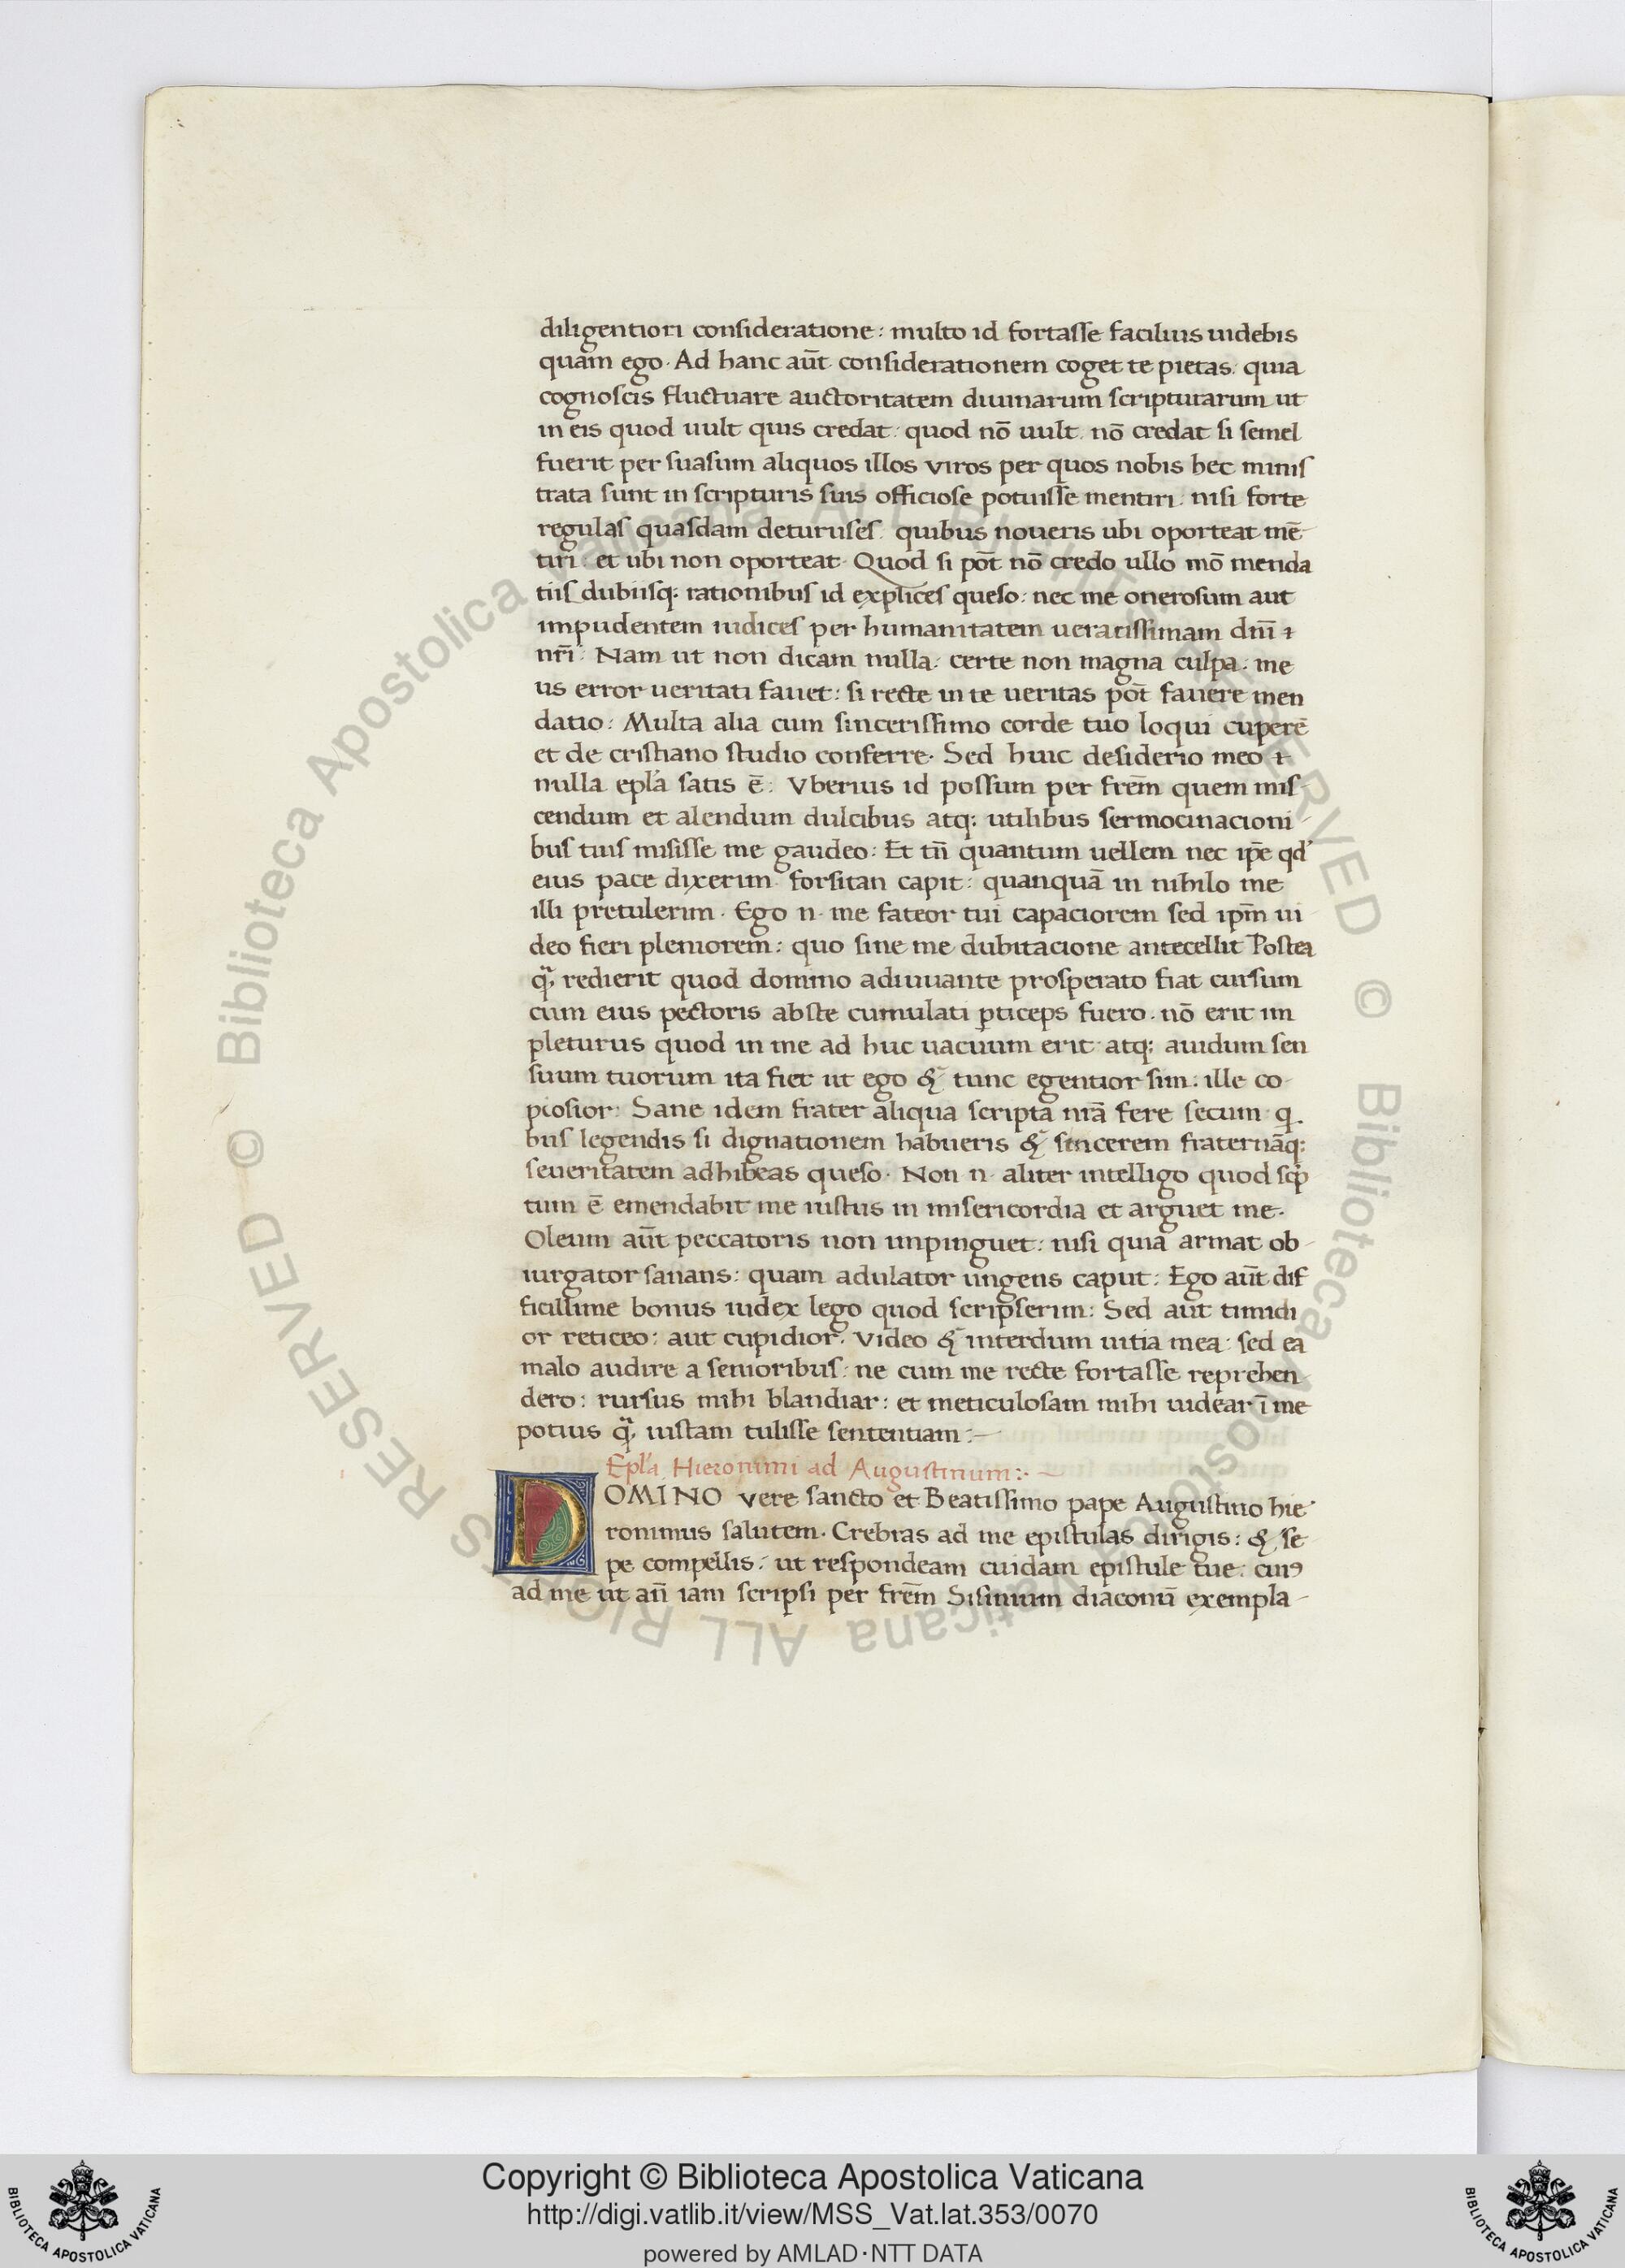 diligentiori consideratione: multo id fortasse facilius uidebis
quam ego. Ad hanc aūt considerationem coget te pietas. quia
cognoscis fluctuare auctoritatem diuinarum scripturarum ut
in eis quod uult quis credat: quod nō uult. nō credat si semel
fuerit per suasum aliquos illos viros per quos nobis hec minis
trata sunt in scripturis suis officiose potuisse mentiri. nisi forte
regulas quasdam deturuses. quibus noueris ubi oporteat mē-
tiri: et ubi non oporteat. Quod si pōt nō credo ullo mō menda
tiis dubiisq; rationibus id explices queso: nec me onerosum aut
impudentem iudices per humanitatem ueracissimam dn̄i ⁊
nr̄i: Nam ut non dicam nulla: certe non magna culpa: me
us error ueritati fauet: si recte in te ueritas pōt fauere men
datio: Multa alia cum sincerissimo corde tuo loqui cuperē
et de cristiano studio conferre. Sed huic desiderio meo ⁊
nulla epl'a satis ē: Vberius id possum per frēm quem mis-
cendum et alendum dulcibus atq; utilibus sermocinacioni-
bus tuis misisse me gaudeo: Et tn̄ quantum uellem nec ip̄e qd'
eius pace dixerim forsitan capit: quanquā in nihilo me
illi pretulerim. Ego n. me fateor tui capaciorem sed ip̄m ui
deo fieri pleniorem: quo sine me dubitacione antecellit Postea
q̄ redierit quod domino adiuuante prosperato fiat cursum
cum eius pectoris abste cumulati ꝑticeps fuero. nō erit im
pleturus quod in me ad huc uacuum erit atq; auidum sen
suum tuorum ita fiet ut ego & tunc egentior sim: ille co-
piosior: Sane idem frater aliqua scripta nr̄a fere secum q.
bus legendis si dignationem habueris & sincerem fraternāq;
seueritatem adhibeas queso. Non n. aliter intelligo quod scp̄
tum ē emendabit me iustus in misericordia et arguet me.
Oleum aūt peccatoris non inpinguet: nisi quia armat ob-
iurgator sanans: quam adulator ungens caput: Ego aūt dif
ficillime bonus iudex lego quod scripserim: Sed aut timidi
or reticeo: aut cupidior. Video & interdum uitia mea: sed ea
malo audire a senioribus: ne cum me recte fortasse reprehen-
dero: rursus mihi blandiar: et meticulosam mihi uidear ī me
potius q̄ iustam tulisse sententiam:—
Epl'a Hieronimi ad Augustinum:·—
DOMINO vere sancto et Beatissimo pape Augustino hie-
ronimus salutem. Crebras ad me epistulas dirigis: & se-
pe compellis: ut respondeam cuidam epistule tue: cuiꝰ
ad me ut an̄ iam scripsi per frēm Sisinium diaconū exempla-
Copyright © Biblioteca Apostolica Vaticana
http://digi.vatlib.it/view/MSS_Vat.lat.353/0070
powered by AMLAD·NTT DATA
BIBLIOTECA APOSTOLICA VATICANA
BIBLIOTECA APOSTOLICA VATICANA
© Biblioteca Apostolica Vaticana ALL RIGHTS RESERVED © Biblioteca Apostolica Vaticana ALL RIGHTS RESERVED